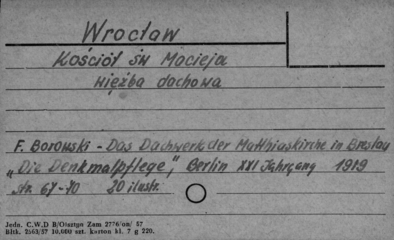 Wrocław
Kościół św Macieja
więźba dachowa
F. Borowski - Das Dachwerk der Matthiaskirche in Breslau
„Die Denkmalpflege", Berlin XXI Jahrgang 1919
str. 67-70 20 ilustr.
Jedn. C.W.D B/Olsztyn Zam 2776/on/ 57
Bltk. 2563/57 10.000 szt. karton kl. 7 g 220.